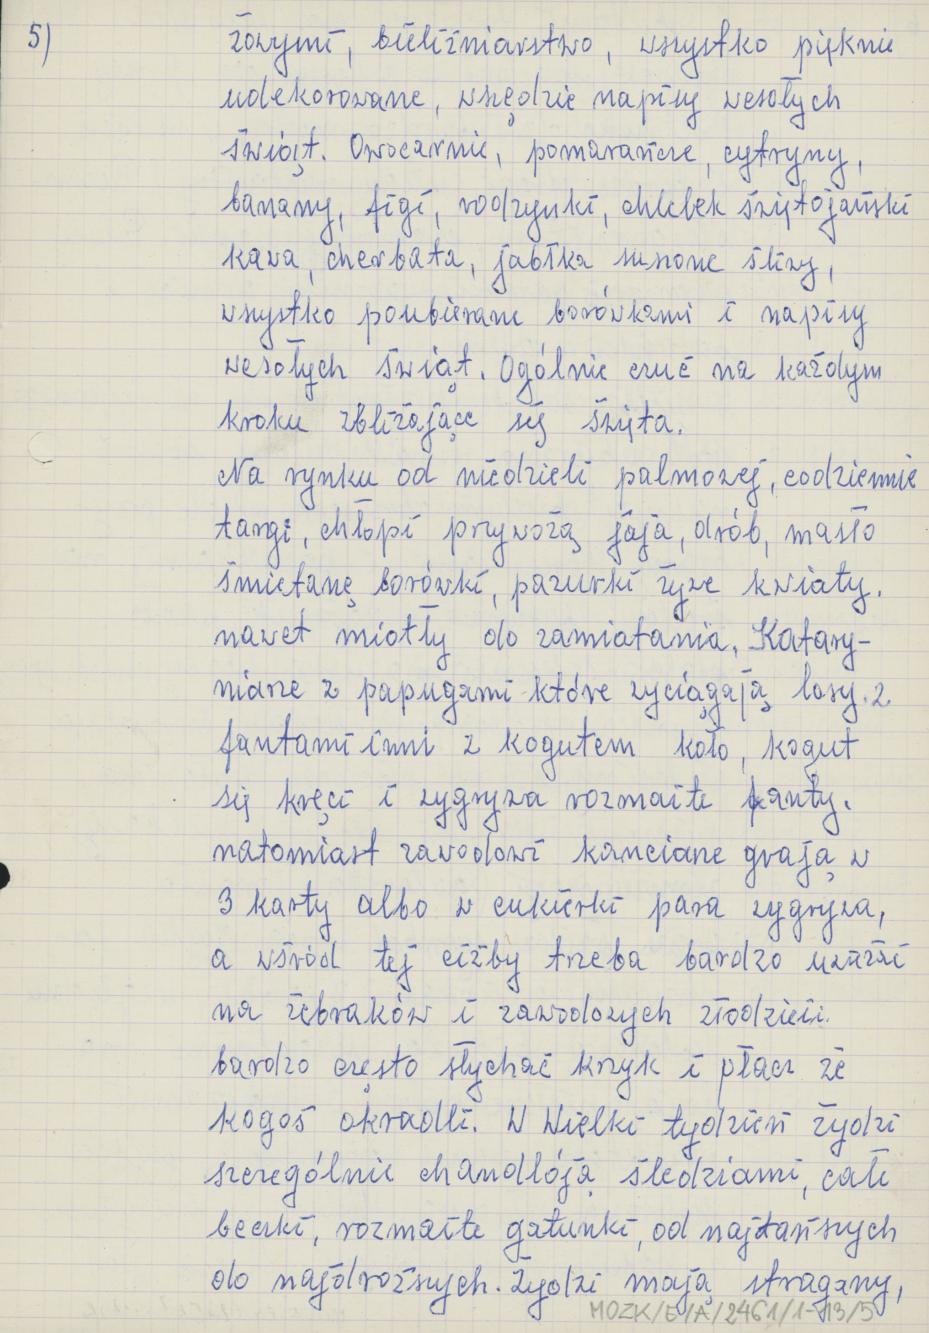 5)
żowymi, bieliźniarstwo, wszystko pięknie
udekorowane, wszędzie napisy wesołych
świąt. Owocarnie, pomarańcze, cytryny,
banany, figi, rodzynki, chlebek świętojański
kawa, cherbata, jabłka suszone śliwy,
wszystko poubierane borówkami i napisy
wesołych świąt. Ogólnie czuć na każdym
kroku zbliżające się święta.
Na rynku od niedzieli palmowej, codziennie
targi, chłopi przywożą jaja, drób, masło
śmietanę borówki, pazurki żywe kwiaty.
nawet miotły do zamiatania. Katary-
niarze z papugami które wyciągają losy. z
fantami inni z kogutem koło, kogut
się kręci i wygrywa rozmaite fanty.
natomiast zawodowi kanciarze grają w
3 karty albo w cukierki para wygrywa,
a wśród tej ciżby trzeba bardzo uważać
na żebraków i zawodowych złodzieii.
bardzo często słychać krzyk i płacz że
kogoś okradli. W Wielki tydzień żydzi
szczególnie chandlóją śledziami, całe
beczki, rozmaite gatunki, od najtańszych
do najdroższych. Żydzi mają stragany,
MOZK/E/A/2461/1-13/5